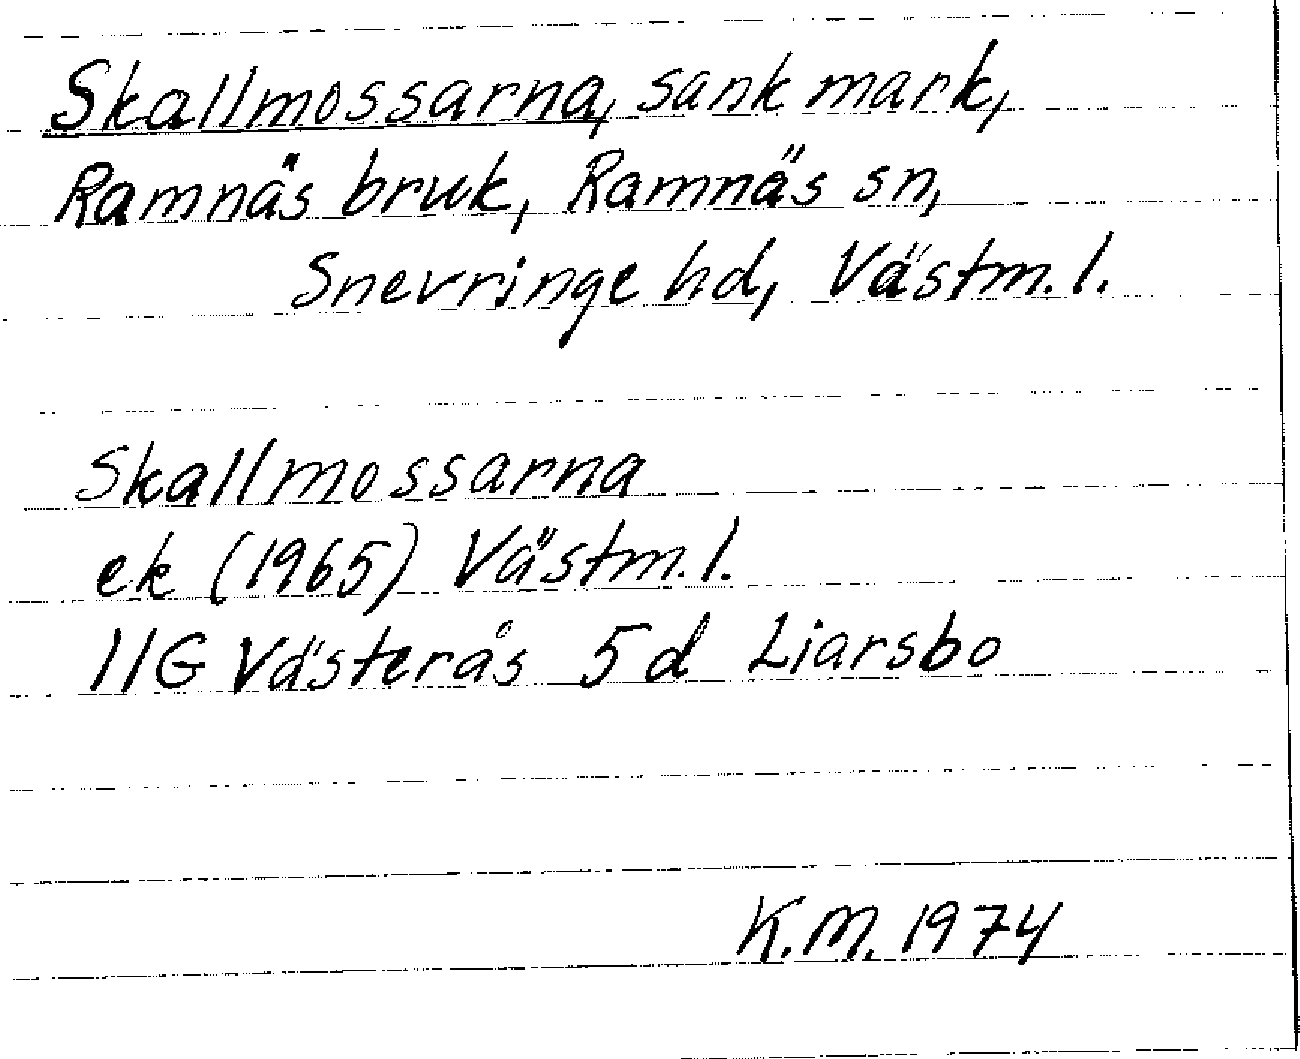 Skallmossarna, sank mark,
Ramnäs bruk, Ramnäs sn,
Snevringe hd, Västm. l.
Skallmossarna
ek (1965) Västm. l.
11G Västerås 5d Liarsbo
K.M. 1974